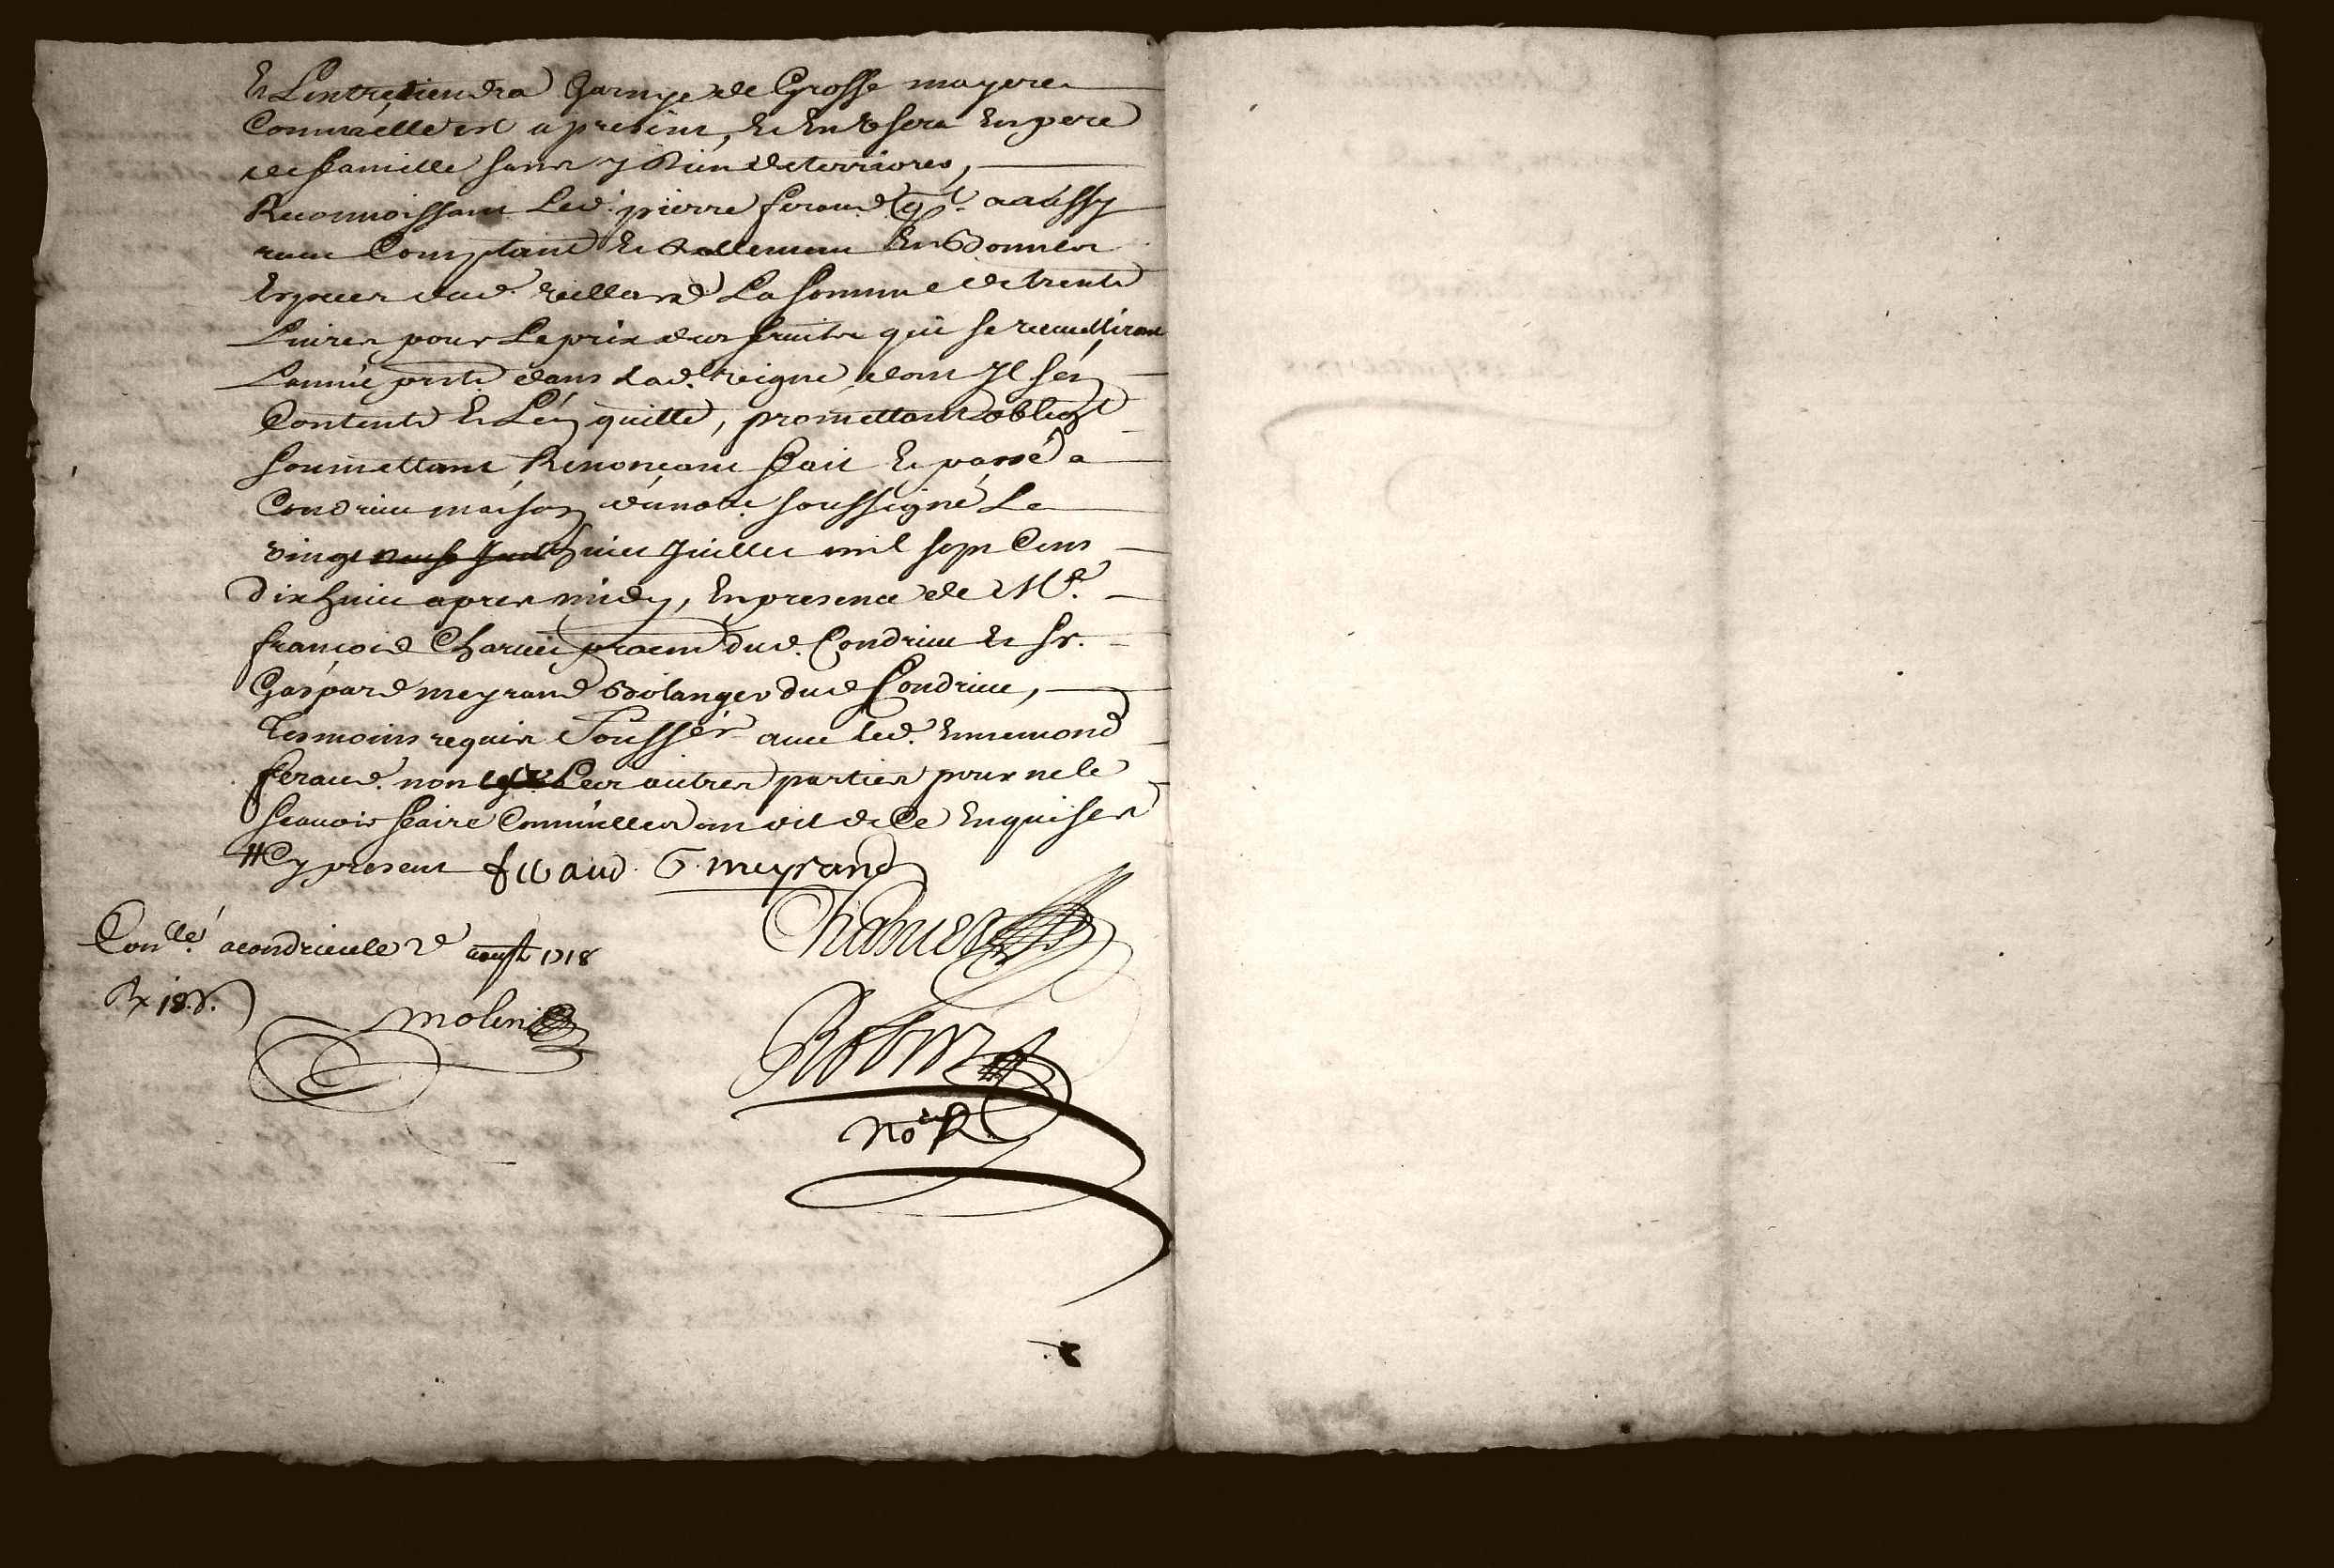 Et Lentretiendra Garnye de Grosse mayere
Comme elle est a present, Et En Usera En pere
de famille sans y Rien deteriorer,
Reconnoissant Led. pierre feraud aaussy
receu Comptant Et Reellement En Bonnes
Especes dud. La somme de trente
Livres pour Le prix des fruits qui se recueilliront
Lannée pnte. dans Lad. vigne dont Jl sen
Contente Et Len quitte, promettant obligt
soumettant Renonçant fait Et passé a
Condrieu maison du not. soussigné Le
vingt huit Juillet mil sept Cens
Dix huit apres midy, En presence de Me.
françois Charvet dud. Condrieu Et Sr.
Gaspard meyrand Bolanger dud Condrieu,
Tesmoins requis Soussés avec Led. Ennemond
feraud. non Les autres parties pour ne le
scavoir faire Comme elles ont dit de Ce Enquises
Cy present feraud G. meyrand
Charvet
Conllé acondrieu le 2e aoust 1718
Rx 18 s.
molin
Robin
Noer